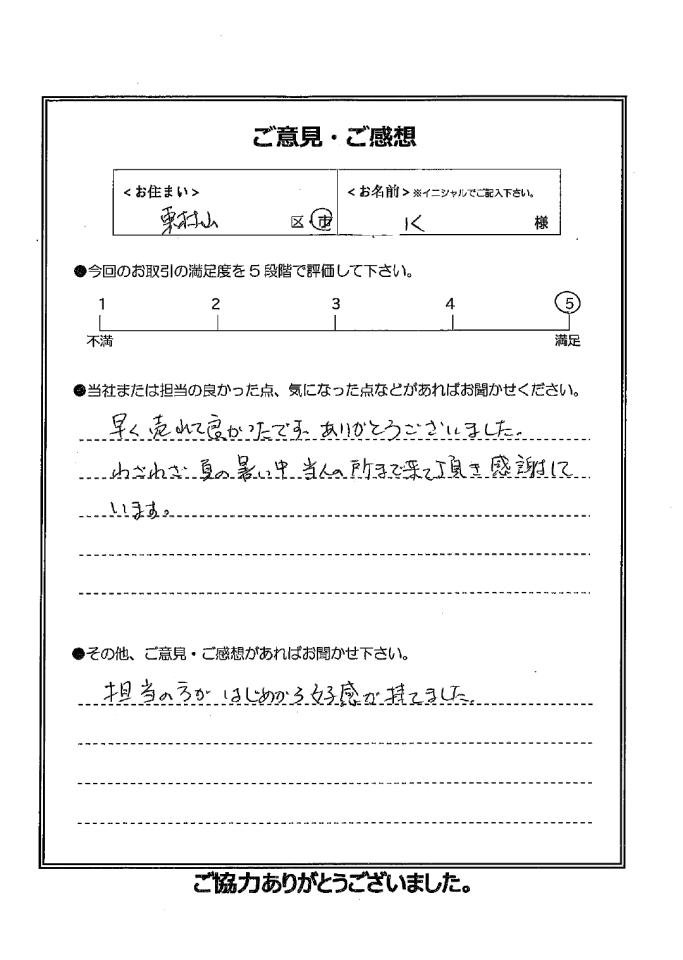 ご意見・ご感想
<お住まい>
東村山 区・市
<お名前>※イニシャルでご記入下さい。
様
●今回のお取引の満足度を5段階で評価して下さい。
1 2 3 4 5
不満 満足
●当社または担当の良かった点、気になった点などがあればお聞かせください。
早く売れて良かったです。ありがとうございました。
わざわざ夏の暑い中 当人の所まで来て頂き感謝して
います。
●その他、ご意見・ご感想があればお聞かせ下さい。
担当の方が はじめから好感が持てました。
ご協力ありがとうございました。